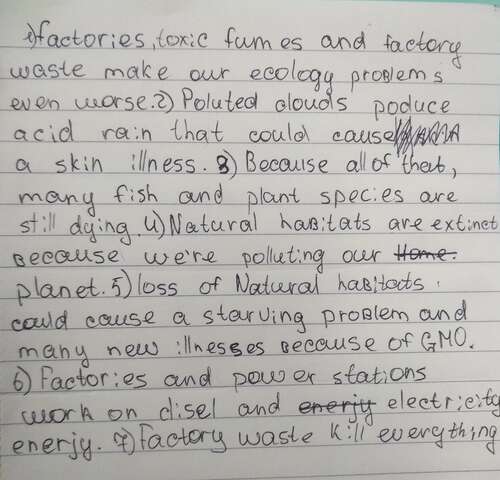 1) factories, toxic fumes and factory
waste make our ecology problems
even worse. 2) Poluted clouds poduce
acid rain that could cause
a skin illness. 3) Because all of that,
many fish and plant species are
still dying. 4) Natural habitats are extinct
because we're polluting our Home.
planet. 5) loss of Natural habitats
could cause a starving problem and
many new illnesses because of GMO.
6) Factories and power stations
work on disel and enerjy electricity
enerjy. 7) Factory waste kill everything